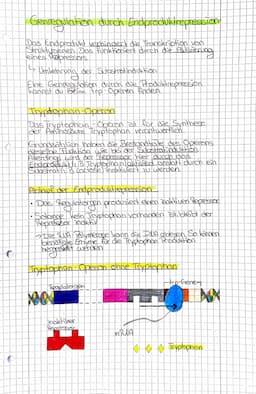 Genregulation durch Endproduktrepression
Das Endprodukt verhindert die Transkription von
Strukturgenen. Das funktioniert durch die Aktivierung
eines Repressors.
↳ Umkehrung der Substratinduktion
Eine Genregulation durch die Produktrepression
kannst du beim Trp Operon finden
Tryptophan-Operon
Das Tryptophan-Operon ist für die Synthese
der Aminosäure Tryptophan verantwortlich
Grundsätzlich haben die Bestandteile des Operons
dieselbe Funktion wie bei der Substratinduktion.
Allerdings wird der Repressor hier durch das
Endprodukt (L.B Tryptophan) aktiviert anstatt durch ein
Substrat (L.B Lactose) inaktiviert zu werden
Ablauf der Endproduktrepression
• Das Regulatorgen produziert einen inaktiven Repressor
• Solange kein Tryptophan vorhanden ist bleibt der
Repressor inaktiv
→ Die RNA Polymerase kann die DNA ablesen. So können
benötigte Enzyme für die Tryptophan Produktion
hergestellt werden
Tryptophan-Operon ohne Tryptophan
Regulatorgen
inaktiver
Repressor
mRNA
Tryptophan